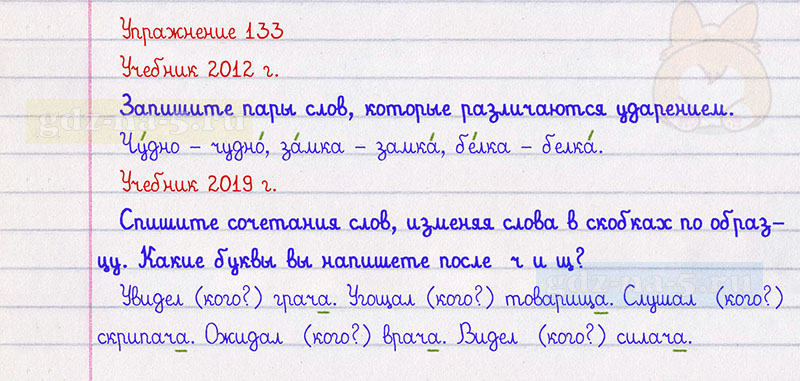 Упражнение 133
Учебник 2012 г.
Запишите пары слов, которые различаются ударением.
Чу́дно – чудно́, за́мка – замка́, бе́лка – белка́.
Учебник 2019 г.
Спишите сочетания слов, изменяя слова в скобках по образ-
цу. Какие буквы вы напишете после ч и щ?
Увидел (кого?) грача. Угощал (кого?) товарища. Слушал (кого?)
скрипача. Ожидал (кого?) врача. Видел (кого?) силача.